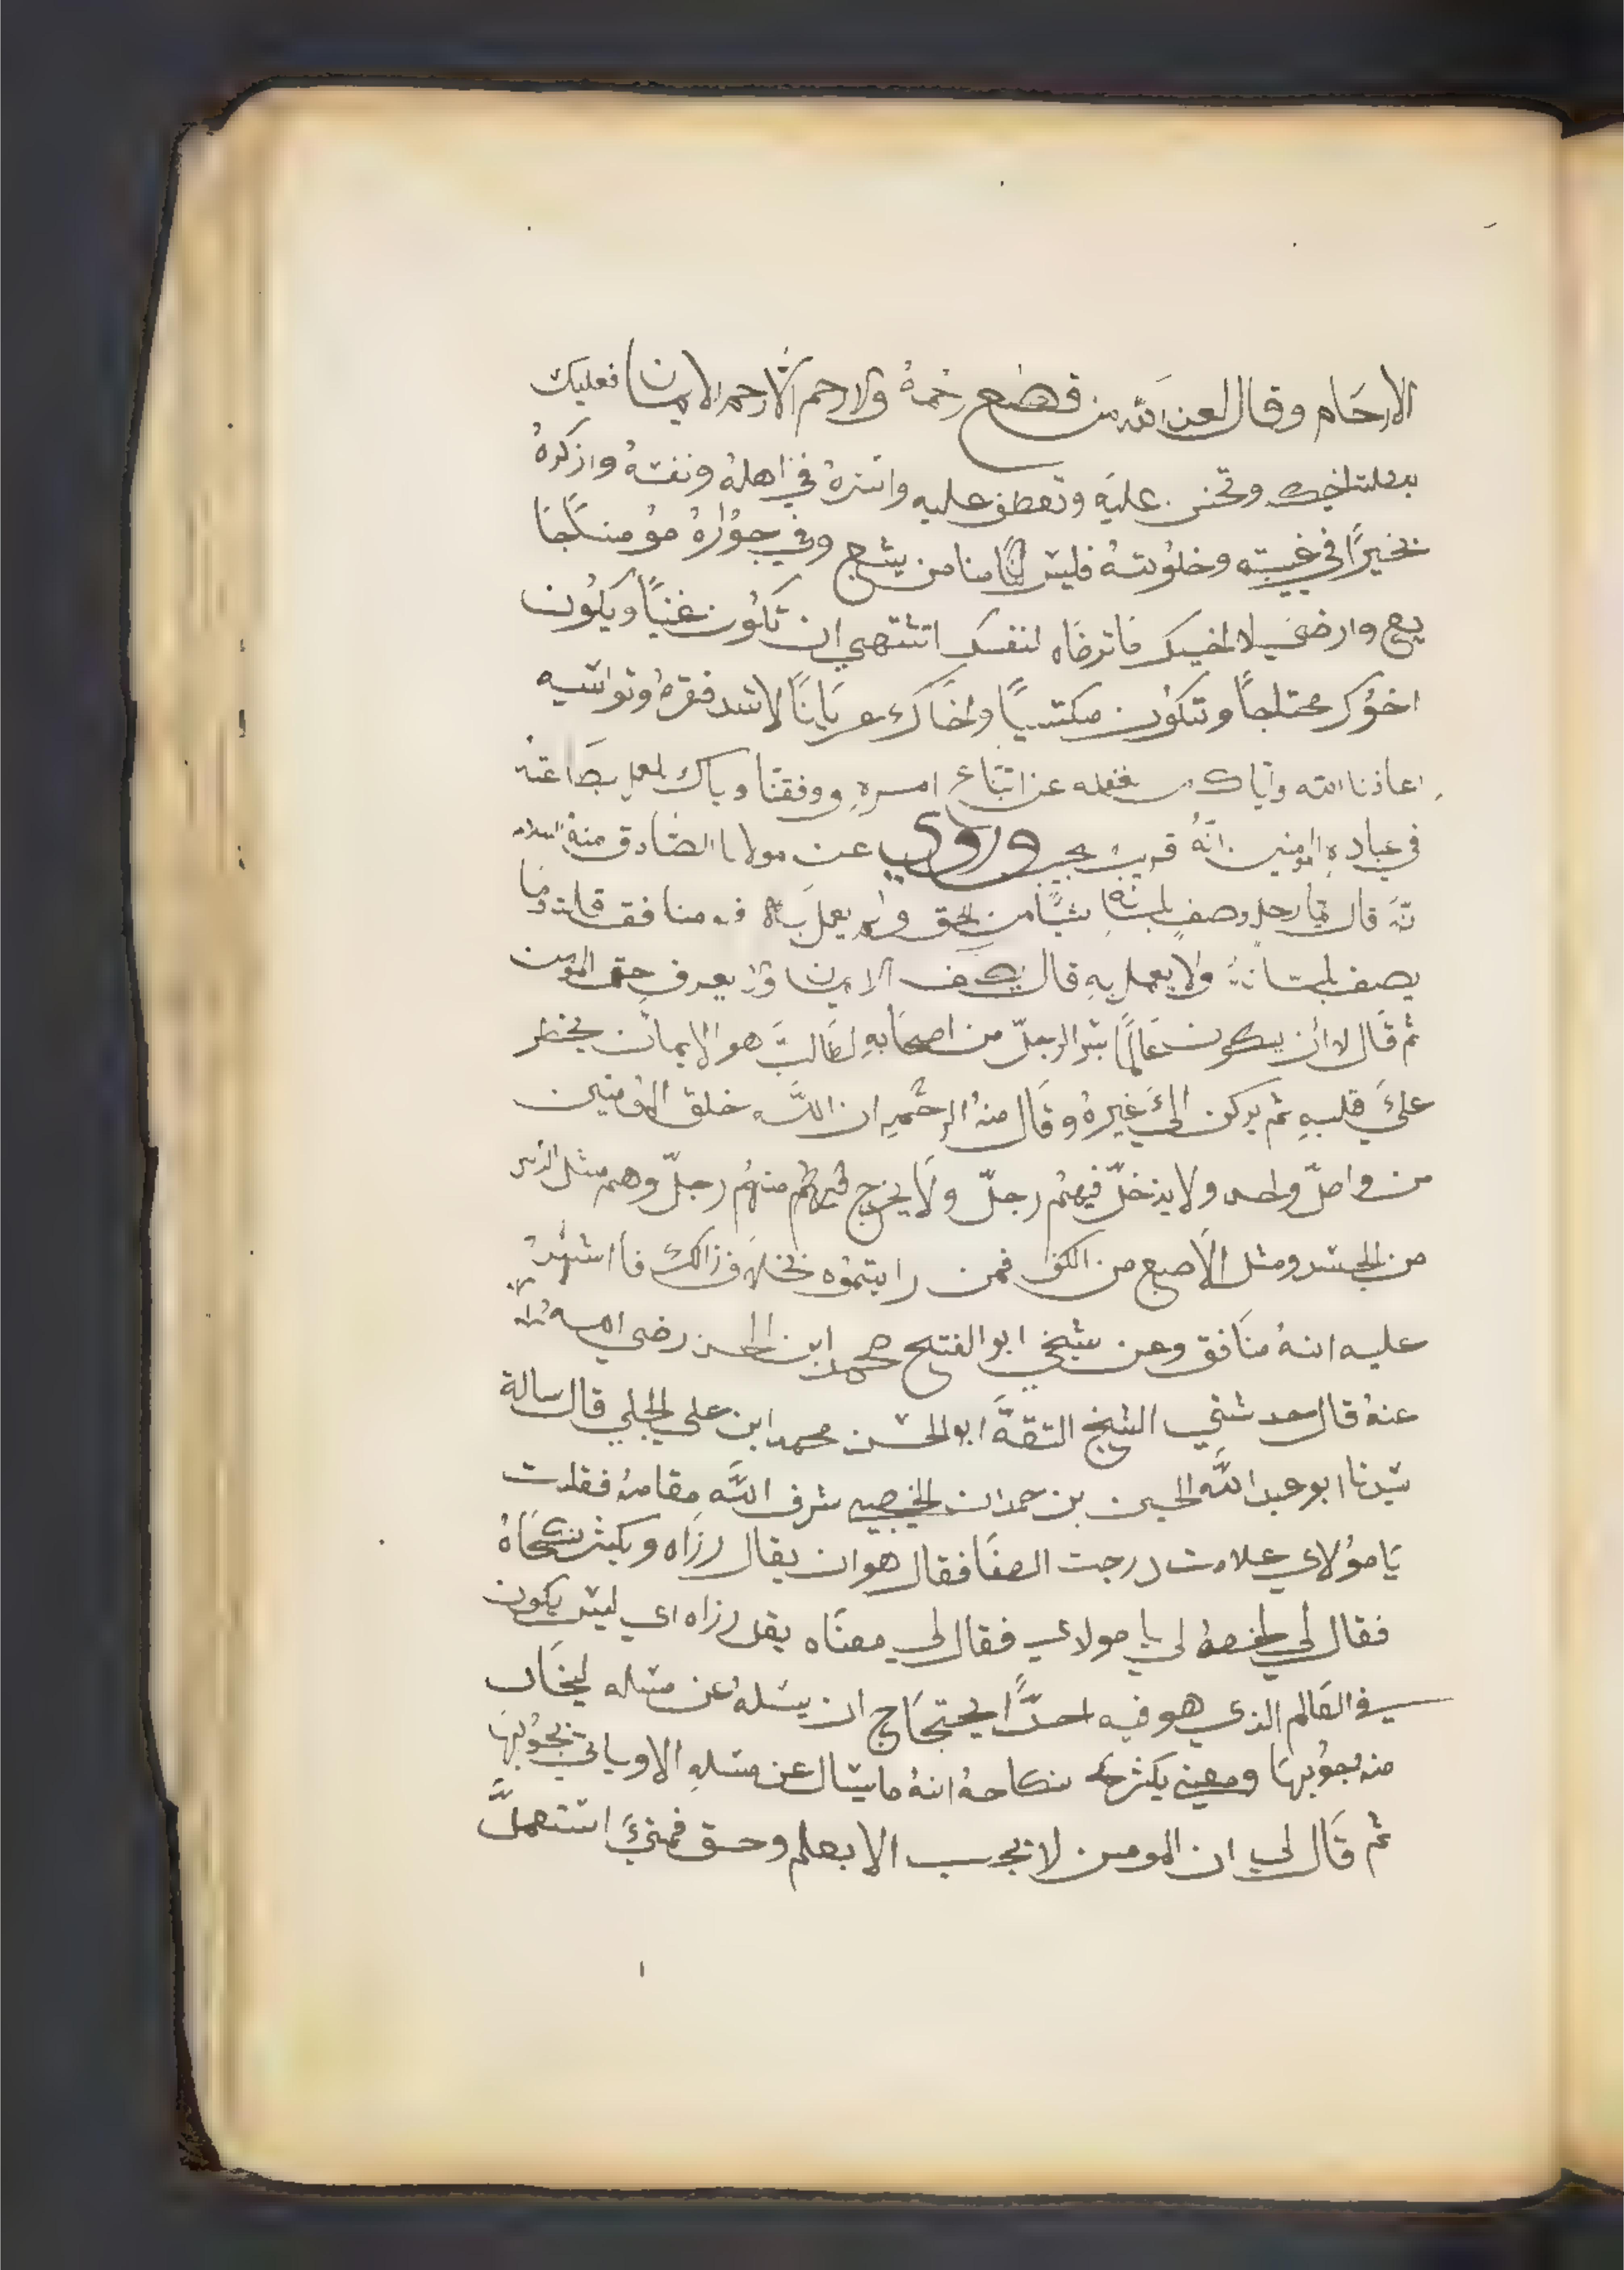 الارحام وقال لعن الله من قطع رحمهُ ولا رحم الا رحم الايمان فعليك
بصلت اخيك وتحنن عليه وتعطف عليه واسترهُ في اهلهُ ونفسهُ واذكرهُ
بخيرًا في غيبته وخلوتهُ فليس منا من يشبع وفي جوارهُ مؤمنًا جا
يع وارضى لاخيك ما ترضاه لنفسك اتشتهي ان تكون غنيًا ويكون
اخوك محتاجًا وتكون مكتسيًا واخاك عريانًا لا تسد فقرهُ وتواسيه
اعاذنا الله واياك من غفله عن اتباع امره ووفقنا وياك لعمل بطاعتهُ
في عباده المومنين انهُ قريب مجيب وروي عن مولانا الصادق منهُ السلام
نهُ قال ايما رجل وصف بلسانه شيئًا من الحق ولم يعمل به فهو منافق قلت وما
يصف بلسانهُ ولا يعمل به قال يصف الايمان ولا يعرف حق المومن
ثم قال لا ان يكون عالمًا بسر الرجل من اصحابه لطالب هو الايمان يخطر
على قلبه ثم يركن الى غيرهُ وقال منهُ الرحمه ان الله خلق المؤمنين
من واصل واحد ولا يدخل فيهم رجل ولا يخرج منهم رجل وهم مثل الراس
من الجسد ومثل الاصبع من الكف فمن رايتموه يخالف ذالك فا اشهدوا
عليه انهُ منافق وعن شيخي ابو الفتح محمد ابن الحسن رضي الله
عنهُ قال حدثني الشيخ الثقة ابو الحسن محمد ابن علي الجلي قال سالة
سيدنا ابو عبد الله الحسين بن حمدان الخصيبي شرف الله مقامهُ فقلت
يا مولاي علامت درجت الصفا فقال هو ان يقال رزاه ويكثر نكحاهُ
فقال لي لخصهُ لي يا مولاي فقال لي معناه يقل رزاه اي ليس يكون
في العالم الذي هو فيه احدًا يحتاج ان يسئله عن مسئله ليخاف
منه بجوبها ومعنى يكثر نكاحهُ انهُ ما يسال عن مسئله الا وياتي بجوبها
ثم قال لي ان المومن لا يجب الا بعلم وحق فمتى استعمل